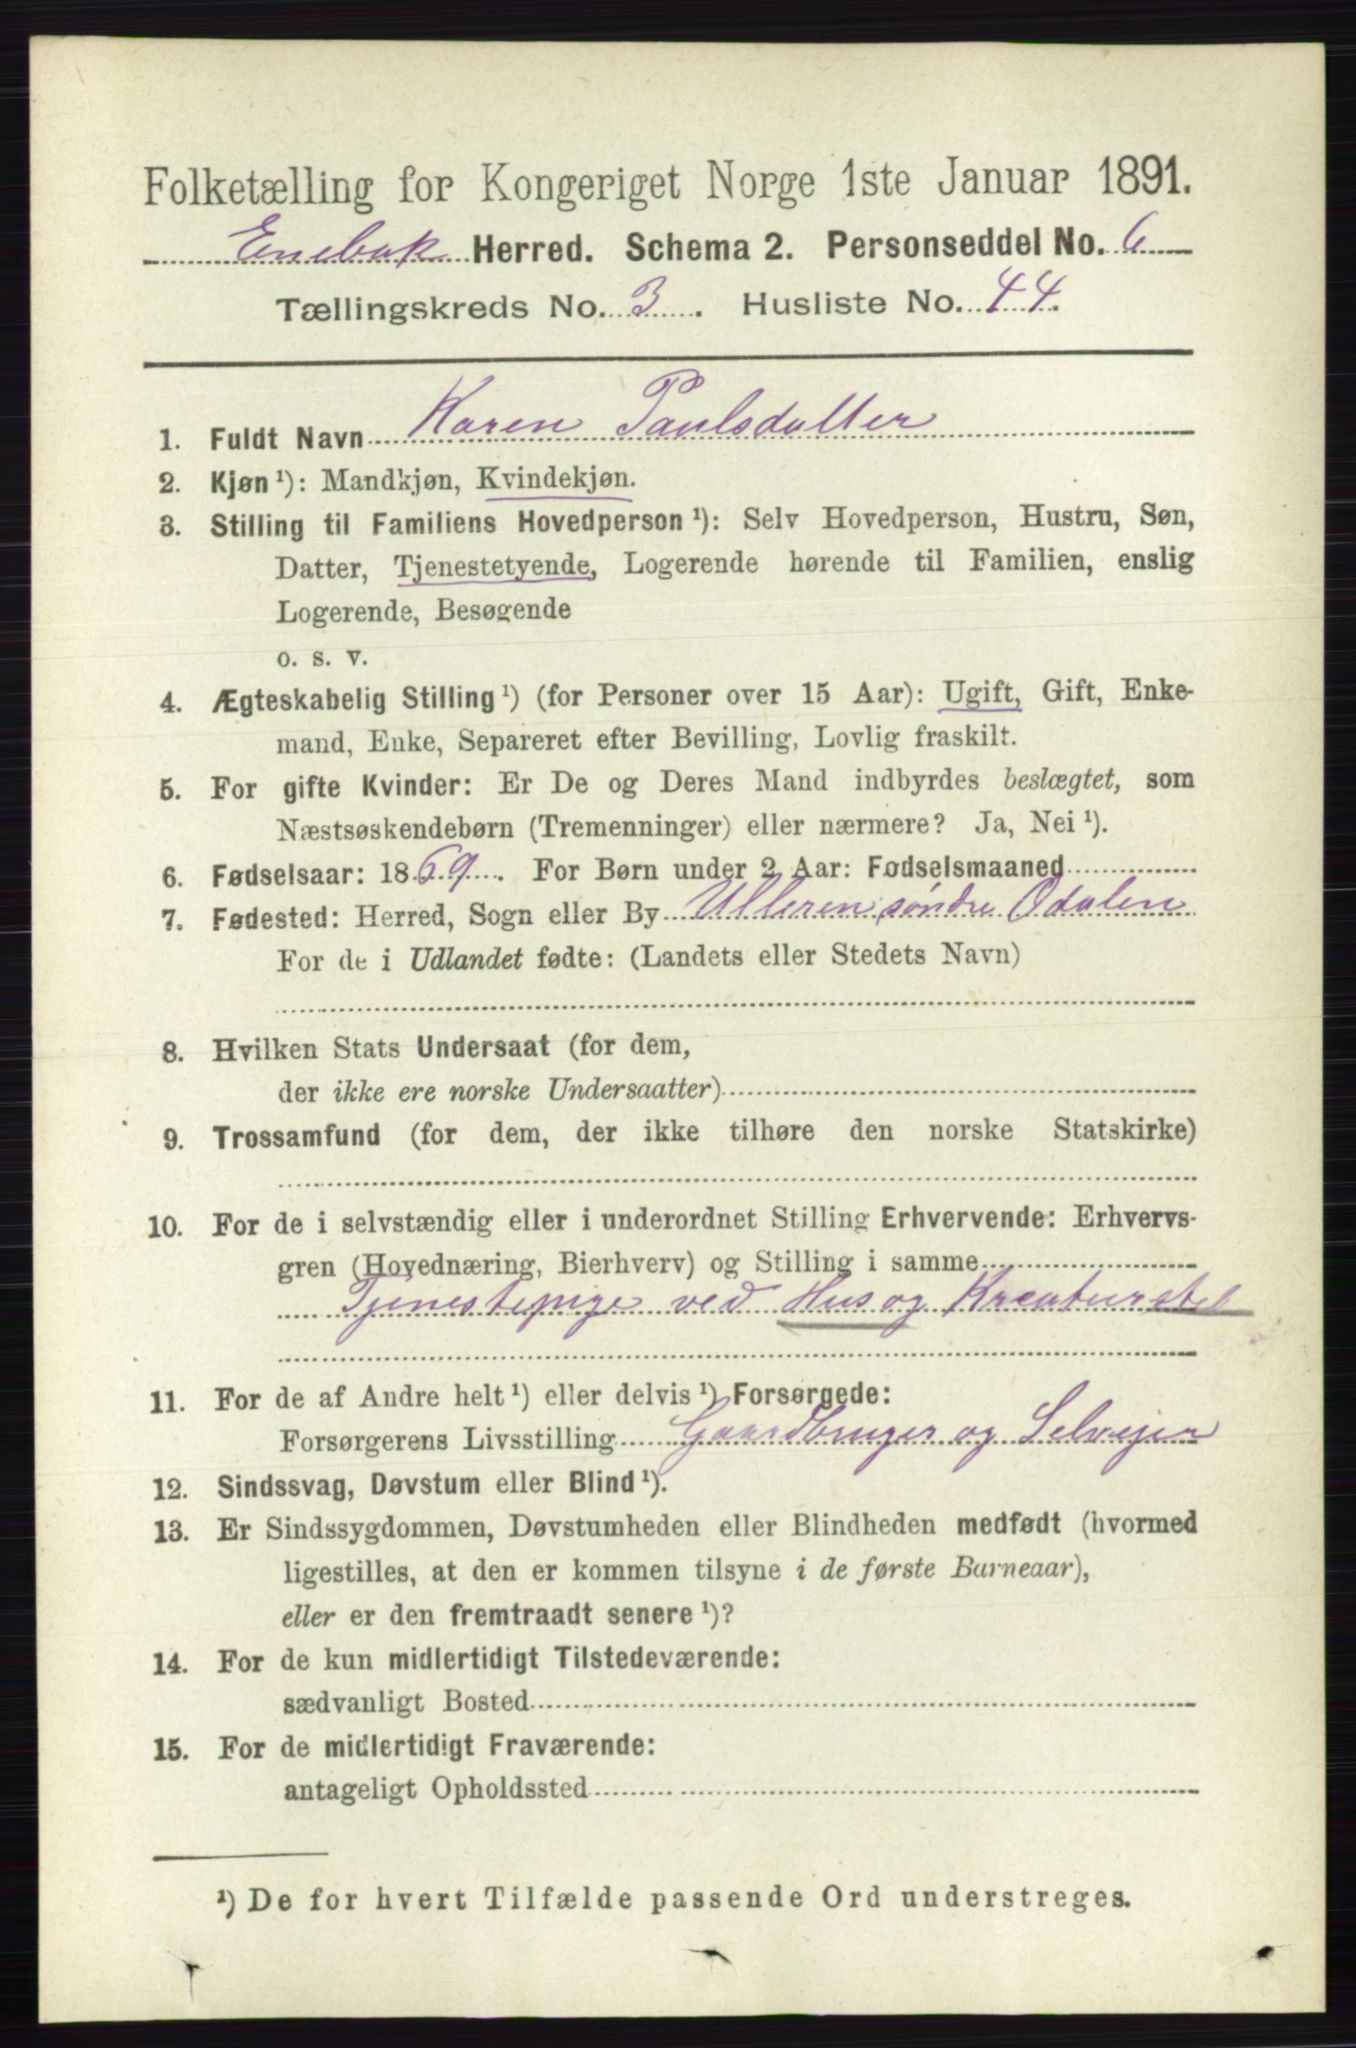 Folketælling for Kongeriget Norge 1ste Januar 1891.
Enebak Herred. Schema 2. Personseddel No. 6
Tællingskreds No. 3. Husliste No. 44.
1. Fuldt Navn Karen Paulsdatter
2. Kjøn ¹): Mandkjøn, Kvindekjøn.
3. Stilling til Familiens Hovedperson ¹): Selv Hovedperson, Hustru, Søn,
Datter, Tjenestetyende, Logerende hørende til Familien, enslig
Logerende, Besøgende
o. s. v.
4. Ægteskabelig Stilling ¹) (for Personer over 15 Aar): Ugift, Gift, Enke-
mand, Enke, Separeret efter Bevilling, Lovlig fraskilt.
5. For gifte Kvinder: Er De og Deres Mand indbyrdes beslægtet, som
Næstsøskendebørn (Tremenninger) eller nærmere? Ja, Nei ¹).
6. Fødselsaar: 1869. For Børn under 2 Aar: Fødselsmaaned
7. Fødested: Herred, Sogn eller By Ulleren søndre Odalen
For de i Udlandet fødte: (Landets eller Stedets Navn)
8. Hvilken Stats Undersaat (for dem,
der ikke ere norske Undersaatter)
9. Trossamfund (for dem, der ikke tilhøre den norske Statskirke)
10. For de i selvstændig eller i underordnet Stilling Erhvervende: Erhvervs-
gren (Hovednæring, Bierhverv) og Stilling i samme
Tjenestepige ved Hus og Kreaturstel
11. For de af Andre helt ¹) eller delvis ¹) Forsørgede:
Forsørgerens Livsstilling Gaardbruger og Selveier
12. Sindssvag, Døvstum eller Blind ¹).
13. Er Sindssygdommen, Døvstumheden eller Blindheden medfødt (hvormed
ligestilles, at den er kommen tilsyne i de første Barneaar),
eller er den fremtraadt senere ¹)?
14. For de kun midlertidigt Tilstedeværende:
sædvanligt Bosted
15. For de midlertidigt Fraværende:
antageligt Opholdssted
¹) De for hvert Tilfælde passende Ord understreges.